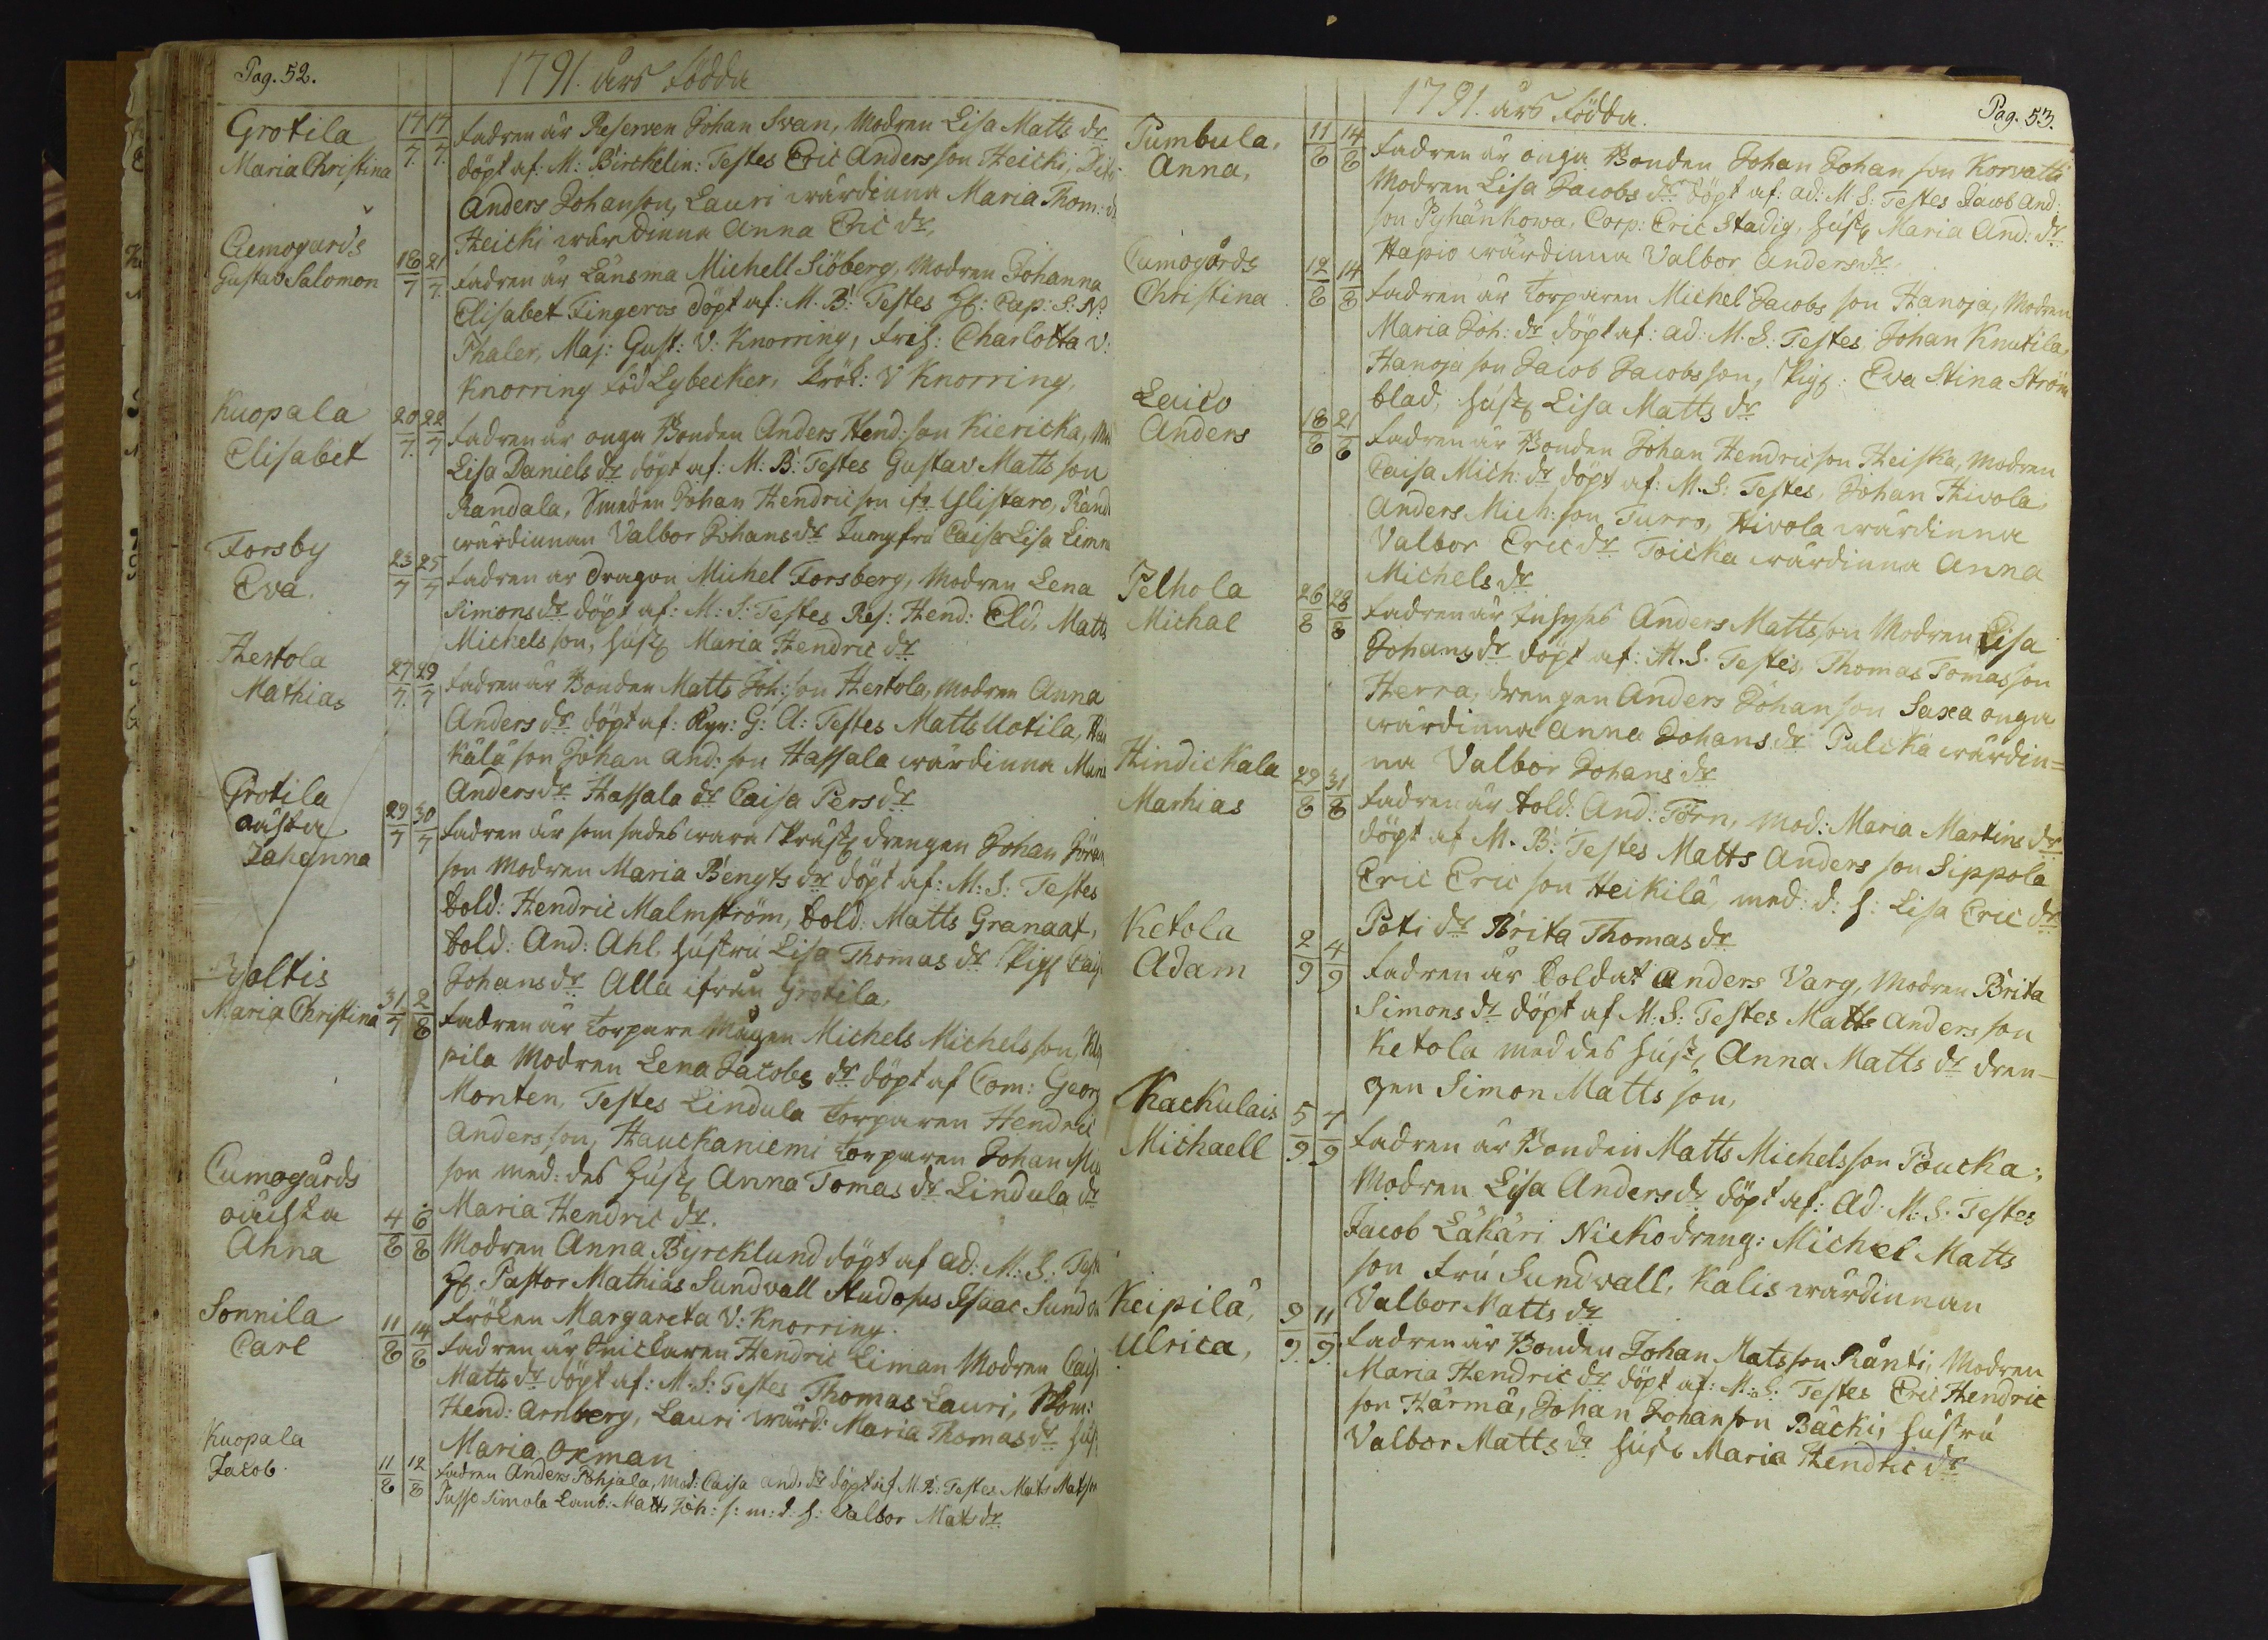 Pag. 52.
1791. års födda
Grotila
Maria Christina
17/7. 17/7.
fadren är Reserven Johan Svan, Modren Lisa Matts dr
döpt af: M: Birckelin: Testes Eric Andersson Heicki,
Anders Johanson, Lauri wärdinna Maria Thom:
Heicki wärdinna Anna Eric dr,
Cumogårds
Gustav Salomon
18/7 21/7.
fadren är Länsma Michell Siöberg, Modren Johanna
Elisabet Fingeros döpt af: M. B: Testes H: Cap: S: N:
Thaler, Maj: Gust: V: Knorring, frih: Charlotta V:
Knorring född Lybecker, Frök: V Knorring,
Kuopala
Elisabet
20/7. 22/7
fadren är onga Bonden Anders Hend: son Kiericka,
Lisa Daniels dr döpt af: M: B: Testes Gustav Matts son
Randala, Smeden Johan Hendricson fr Ylistaro,
wärdinnan Valbor Johans dr Jungfru Caisa Lisa
Forsby
Eva.
23/7 25/7
fadren är Dragon Michel Forsberg, Modren Lena
Simons dr döpt af: M: S: Testes Res: Hend: Eld, Matts
Michelsson, hust Maria Hendric dr
Hertola
Mathias
27/7. 29/7
fadren är Bonden Matts Joh: son Hertola, Modren Anna
Anders dr döpt af: G: A: Testes Matts Uotila,
källä son Johan And: son Hassala wärdinna
Anders dr Hassala dr Caisa Pers dr
Grotila
oäkta
Johanna
29/7 30/7
fadren är som sades wara Präst drengen Johan
son Modren Maria Bengts dr döpt af: M: S: Testes
Sold: Hendric Malmström, Sold: Matts Granaat,
Sold: And: Ahl, hustru Lisa Thomas dr Pig
Johans dr Alla ifrån Grotila,
Voltis
Maria Christina
31/7 2/8
fadren är torpare Mågen Michels Michelsson,
pila Modren Lena Jacobs dr döpt af Com: Georg
Monten, Testes Lindula torparen Hendric
Andersson, Hauckaniemi torparen Johan
son med: des hust Anna Tomas dr Lindula dr
Maria Hendric dr.
Cumogårds
oächta
Anna
4/8 6/8
Modren Anna Byrcklund döpt af ad: M: S: Test
H. Pastor Mathias Sundwall Studosus Isaac
fröken Margareta V: Knorring.
Sonnila
Carl
11/8 14/8
fadren är Snickaren Hendric Liman Modren
Matts dr döpt af: M: S: Testes Thomas Lauri,
Hend: Arnberg, Lauri wärd: Maria Thomas dr
Maria Oxman
Kuopala
Jacob.
11/8 12/8
fadren Anders Pohjala, Mod: Caisa And: dr döpt af M. B: Testes Mats
Jusse Simola Matts Joh: s: m: d: h: Valbor Mats dr
1791. års födda.
Pag. 53.
Pumbula,
Anna,
11/8 14/8
fadren är onga Bonden Johan Johan son Korvatti
Modren Lisa Jacobs dr döpt af: ad: M S: Testes Jacob And:
son Pyhänkowa, Corp: Eric Stadig, hust Maria And: dr
Hapio wärdinna Valbor Anders dr
Cumogårds
Christina
12/8 14/8
fadren är torparen Michel Jacobs son Hanoja, Modren
Maria Joh: dr döpt af: ad: M. S: Testes Johan Knutila,
Hanoja son Jacob Jacobsson, Pig: Eva Stina Ström
blad, hust Lisa Matts dr
Laiko
Anders
18/8 21/8
fadren är Bonden Johan Hendricson Heiska, Modren
Caisa Mich: dr döpt af: M. S: Testes, Johan Hivola
Anders Mich: son Turro, Hivola wärdinna
Valbor Eric dr Toicka wärdinna Anna
Michels dr
Pelhola
Michal
26/8 28/8
fadren är Inhyses Anders Mattsson Modren Lisa
Johans dr döpt af: M. S. Testes, Thomas Tomasson
Herra, drengen Anders Johanson Saxa onga
wärdinna Anna Johans dr Pulcka wärdin=
na Valbor Johans dr
Hindickala
Marhias
29/8 31/8
fadren är Sold. And: Törn, Mod: Maria Martins dr
döpt af M. B: Testes Matts Anders son Sippola
Eric Eric son Heikilä, med: d: h: Lisa Eric dr
Poti dr Brita Thomas dr
Ketola
Adam
2/9 4/9
fadren är Soldat Anders Varg, Modren Brita
Simons dr döpt af M: S: Testes Matts Andersson
Ketola med des hust Anna Matts dr dren-
gen Simon Matts son,
Kackulais
Michaell
5/9 7/9
fadren är Bonden Matts Michelsson Poucka,
Modren Lisa Anders dr döpt af: Ad: M: S: Testes
Jacob Läkäri Nickodreng: Michel Matts
son Fru Sundwall, Kalis wärdinnan
Valbor Matts dr
Keipilä,
Ulrica,
9/9 11/9.
fadren är Bonden Johan Matsson Ränti, Modren
Maria Hendric dr döpt af: M: S: Testes Eric Hendric
son Härmä, Johan Johanson Bäcki, hustru
Valbor Matts dr hust Maria Hendric dr